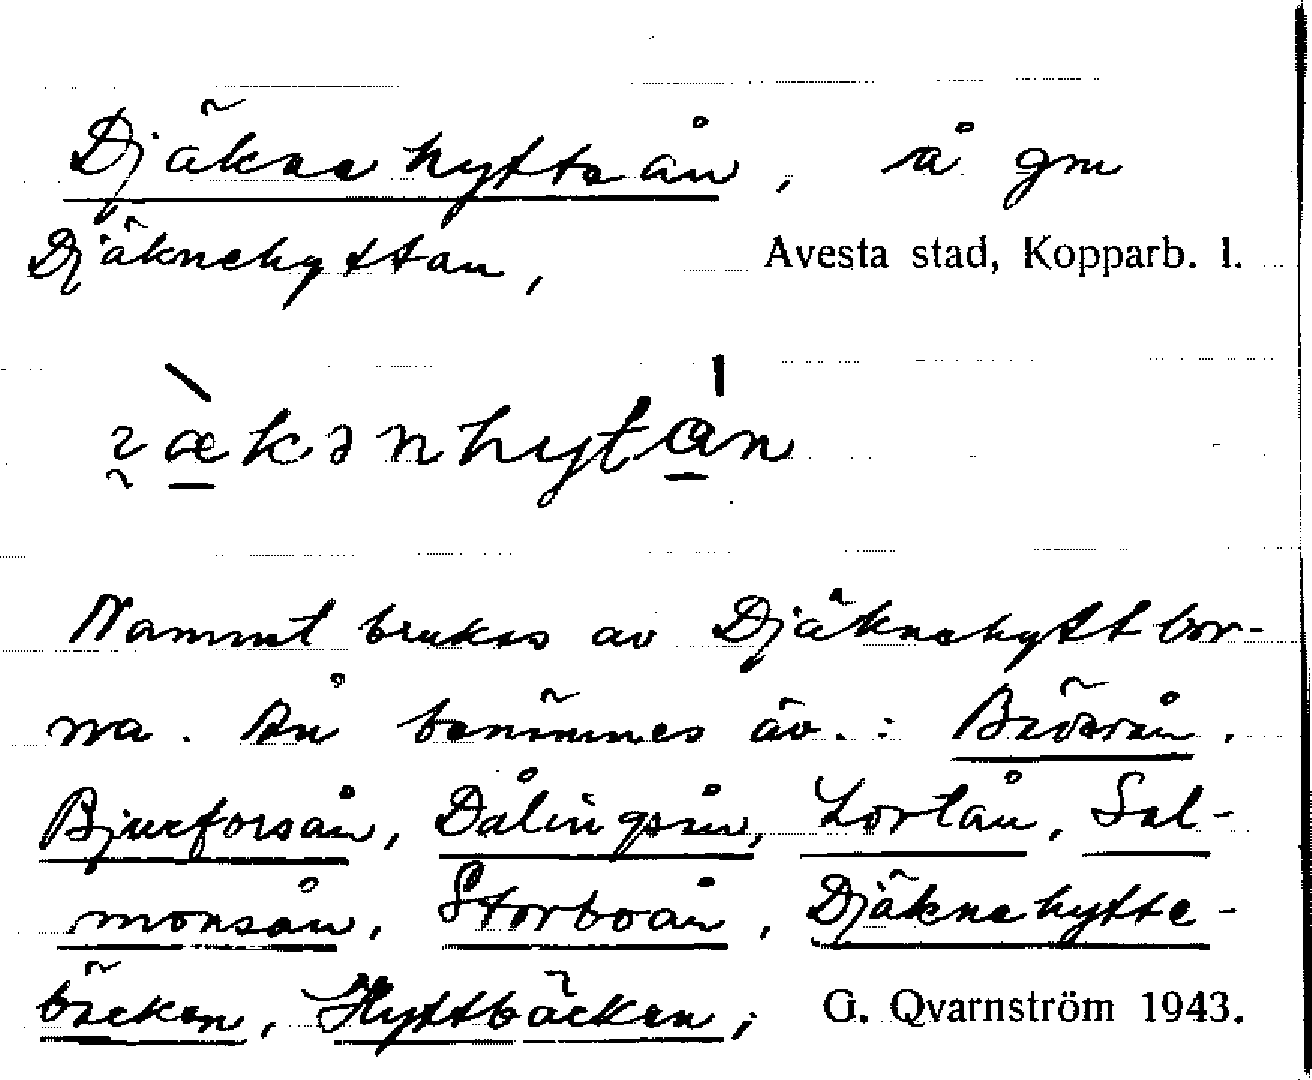 Djäknehytteån, å gm
Djäknehyttan, Avesta stad, Kopparb. l.
Namnet brukas av Djäknehyttbor-
na. Ån benämnes äv.:
Bjurforsån, Dålingsån, Lortån, Sal-
monsån, Storboån, Djäknehytte-
bäcken, Hyttbäcken; G. Qvarnström 1943.